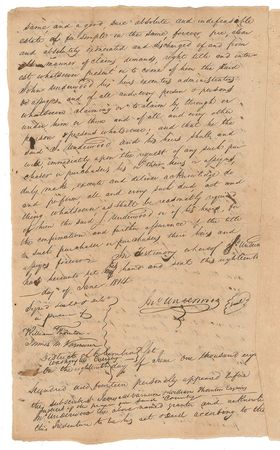 same and a good sure absolute and indefeasible
estate of fee simple in the same forever, free, clear
and absolutely exonerated and discharged of and from
all manner of claim, demands, right title and inter
est whatsoever present or to come of him the said
John Underwood his heirs executors administrators
or assigns, and of all and every person & persons
whatsoever claiming or to claim by through or
under him or them and of all and every other
person & persons whatsoever; and that he the
said J. Underwood and his heirs shall and
will immediately upon the request of any such pur
chaser or purchasers his or their heirs or assigns,
duly make, execute and deliver acknowledge do
and perform all and every such deed, act and
thing whatsoever as shall be reasonably
of him the said J. Underwood or of his heirs for
the confirmation and further assurance of the title
to such purchaser or purchasers their heirs and
assigns forever In testimony whereof J. Underwood
has hereunto set his hand and seal this eighteenth
day of June 1814
Signed sealed &
in presence of
Jno. Underwood Seal
William Thornton
District of Columbia Sct
Washington County
On the eighteenth day of June one thousand eig
hundred and fourteen personally appeared before
the subscribers William Thornton Esquires
Justices of the peace for said County
Jno. Underwood the above named grantor and acknowle
this Indenture to be his act & deed according to the